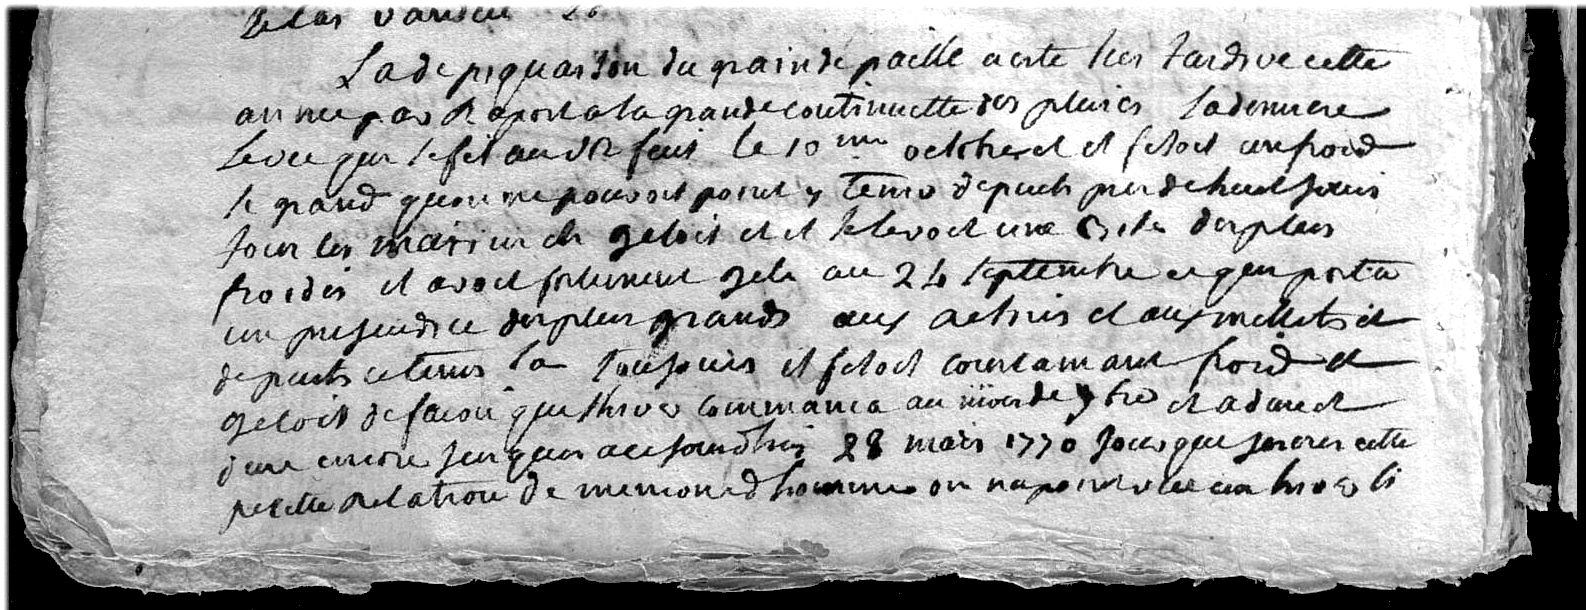 La depiquaison du grain de paille a esté tres tardive cette
année par raport a la grande continuette des pluies la derniere
levée qui se fit au sol fait le 10me octobre et il fesoit un froid
si grand quon ne pouvoit point y tenir depuis pres de huit jours
tous les matins il geloit et il se levoit une bise des plus
froides il avoit fortement gelé au 24 septembre ce qui porta
un prejudice des plus grands aux arbres et aux millets et
depuis ce tems la toujours il fesoit constamant froid et
geloit de facon que lhiver commança au mois de 7bre et a duré et
dure encore jusques a ce jourdhui 28 mars 1770 jour que jecris cette
petitte relation de memoire dhomme on na point vu un hiver si